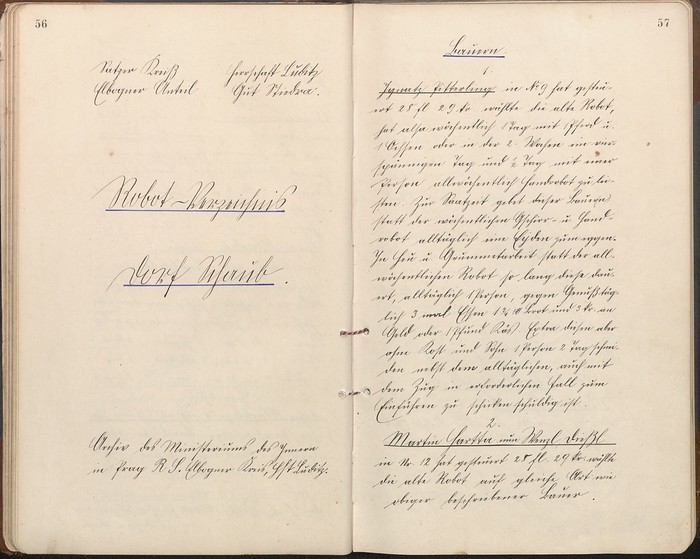 56
Saazer Kreiß Herrschaft Luditz
Elbogner Anteil Gut Studra.
Robot-Verzeichnis
Dorf Schaub.
Archiv des Ministeriums des Innern
in Prag R. S. Elbogner Kreis, Hft Luditz.
57
Bauern.
1.
Ignatz in No 9 hat gesteu-
ert 28 fl 29 kr. wählte die alte Robot,
hat also wöchentlich 1 Tag mit 1 Pferd u.
1 Ochsen oder in der 2. Wochen ein vier-
spännigen Tag und ½ Tag mit einer
Person allwöchentlich Handrobot zu lei-
sten. Zur Saatzeit gebet dieser Bauern
statt der wöchentlichen Geschirr- u. Hand-
robot alltäglich eine Eyden zum eggen.
In Heu u. Grummetarbeit statt der all-
wöchentlichen Robot so lang diese dau-
ert, alltäglich 1 Person, gegen Genuß täg-
lich 3 mal Essen Brot und 3 kr. an
Geld oder 1 Pfund Käs. Extra diesem aber
ohne Kost und Lohn 1 Person 2 Tag schnei-
den nebst dem alltäglichen, auch mit
dem Zug in erforderlichen Fall zum
Einführen zu schicken schuldig ist.
2.
Martin Hartta nun Wenzl
in Nr. 12 hat gesteuert 28 fl. 29 kr. wählte
die alte Robot auf gleiche Art wie
obiger beschriebener Bauer.